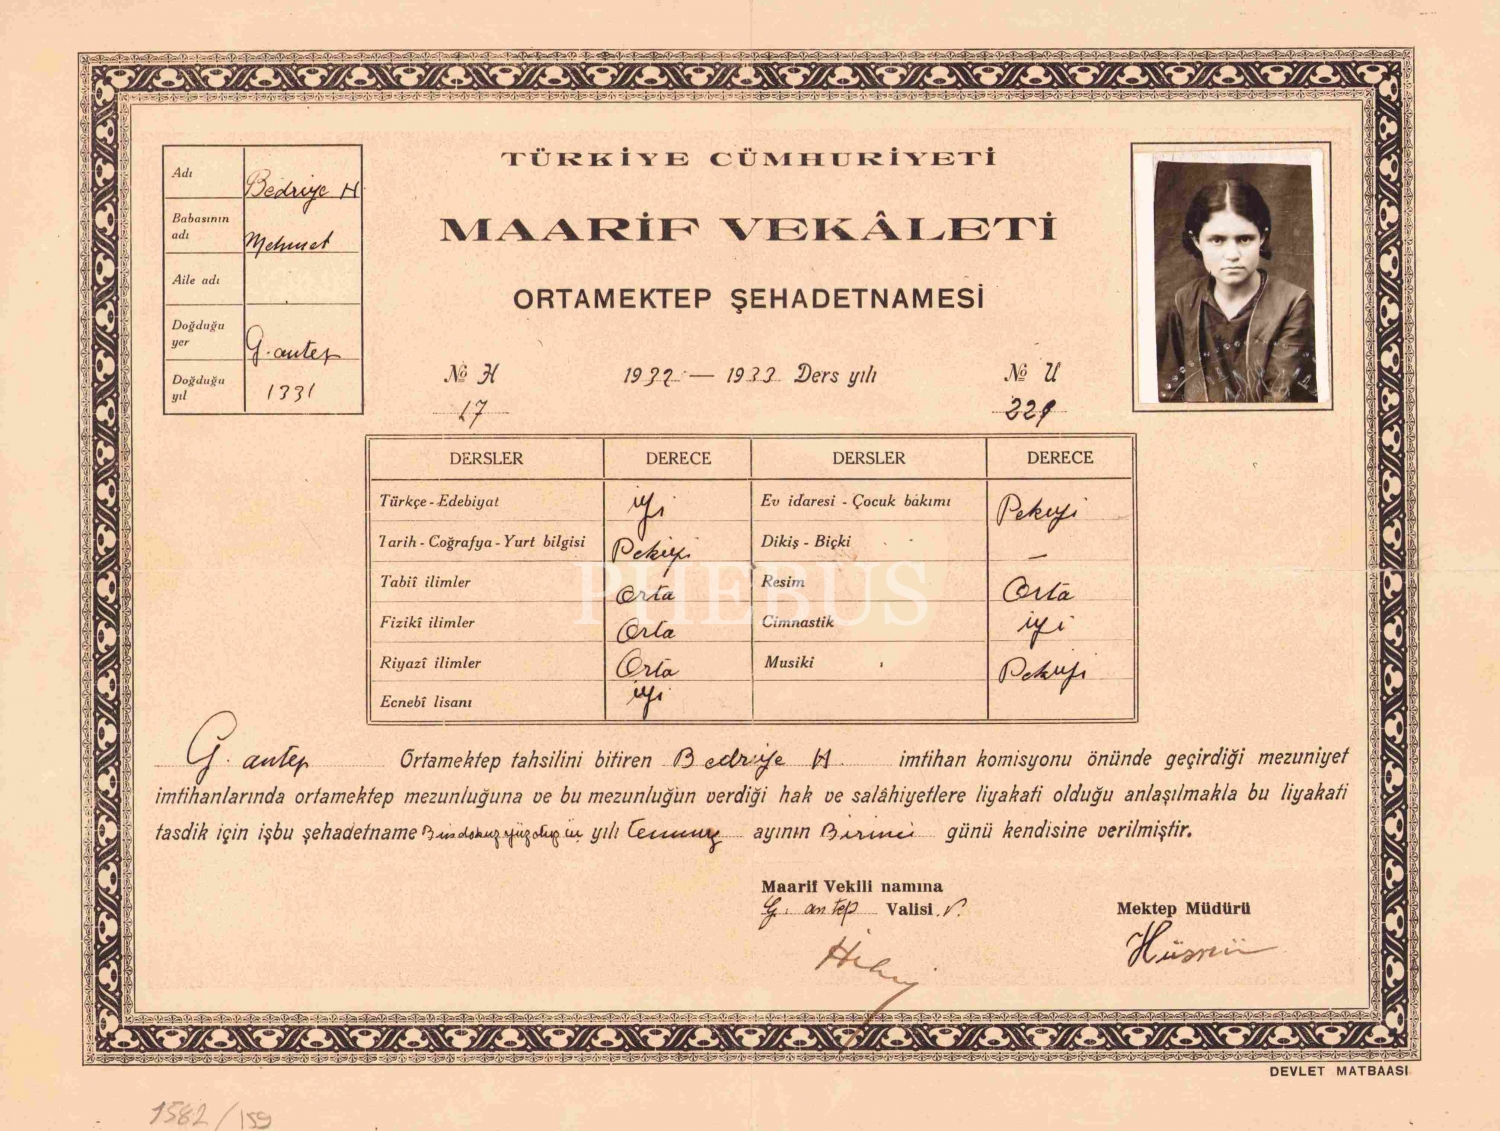 TÜRKİYE CÜMHURİYETİ
MAARİF VEKÂLETİ
ORTAMEKTEP ŞEHADETNAMESİ
Adı Bedriye H
Babasının adı Mehmet
Aile adı
Doğduğu yer G. antep
Doğduğu yıl 1331
№ H 17
1932 — 1933 Ders yılı
№ U 221
DERSLER DERECE DERSLER DERECE
Türkçe - Edebiyat iyi Ev idaresi - Çocuk bakımı Pekiyi
Tarih - Coğrafya - Yurt bilgisi Pekiyi Dikiş - Biçki —
Tabiî ilimler Orta Resim Orta
Fizikî ilimler Orta Cimnastik iyi
Riyazî ilimler Orta Musiki Pekiyi
Ecnebî lisanı iyi
PHEBUS
G. antep Ortamektep tahsilini bitiren Bedriye H. imtihan komisyonu önünde geçirdiği mezuniyet
imtihanlarında ortamektep mezunluğuna ve bu mezunluğun verdiği hak ve salâhiyetlere liyakati olduğu anlaşılmakla bu liyakati
tasdik için işbu şehadetname Bindokuzyüzotuz üç yılı temmuz ayının Birinci günü kendisine verilmiştir.
Maarif Vekili namına
G. antep Valisi V.
Mektep Müdürü
Hüsnü
DEVLET MATBAASI
1582/159